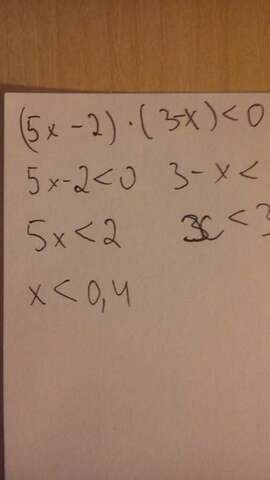 (5x-2)·(3-x)<0
5x-2<0 3-x<
5x<2 x<3
x<0,4